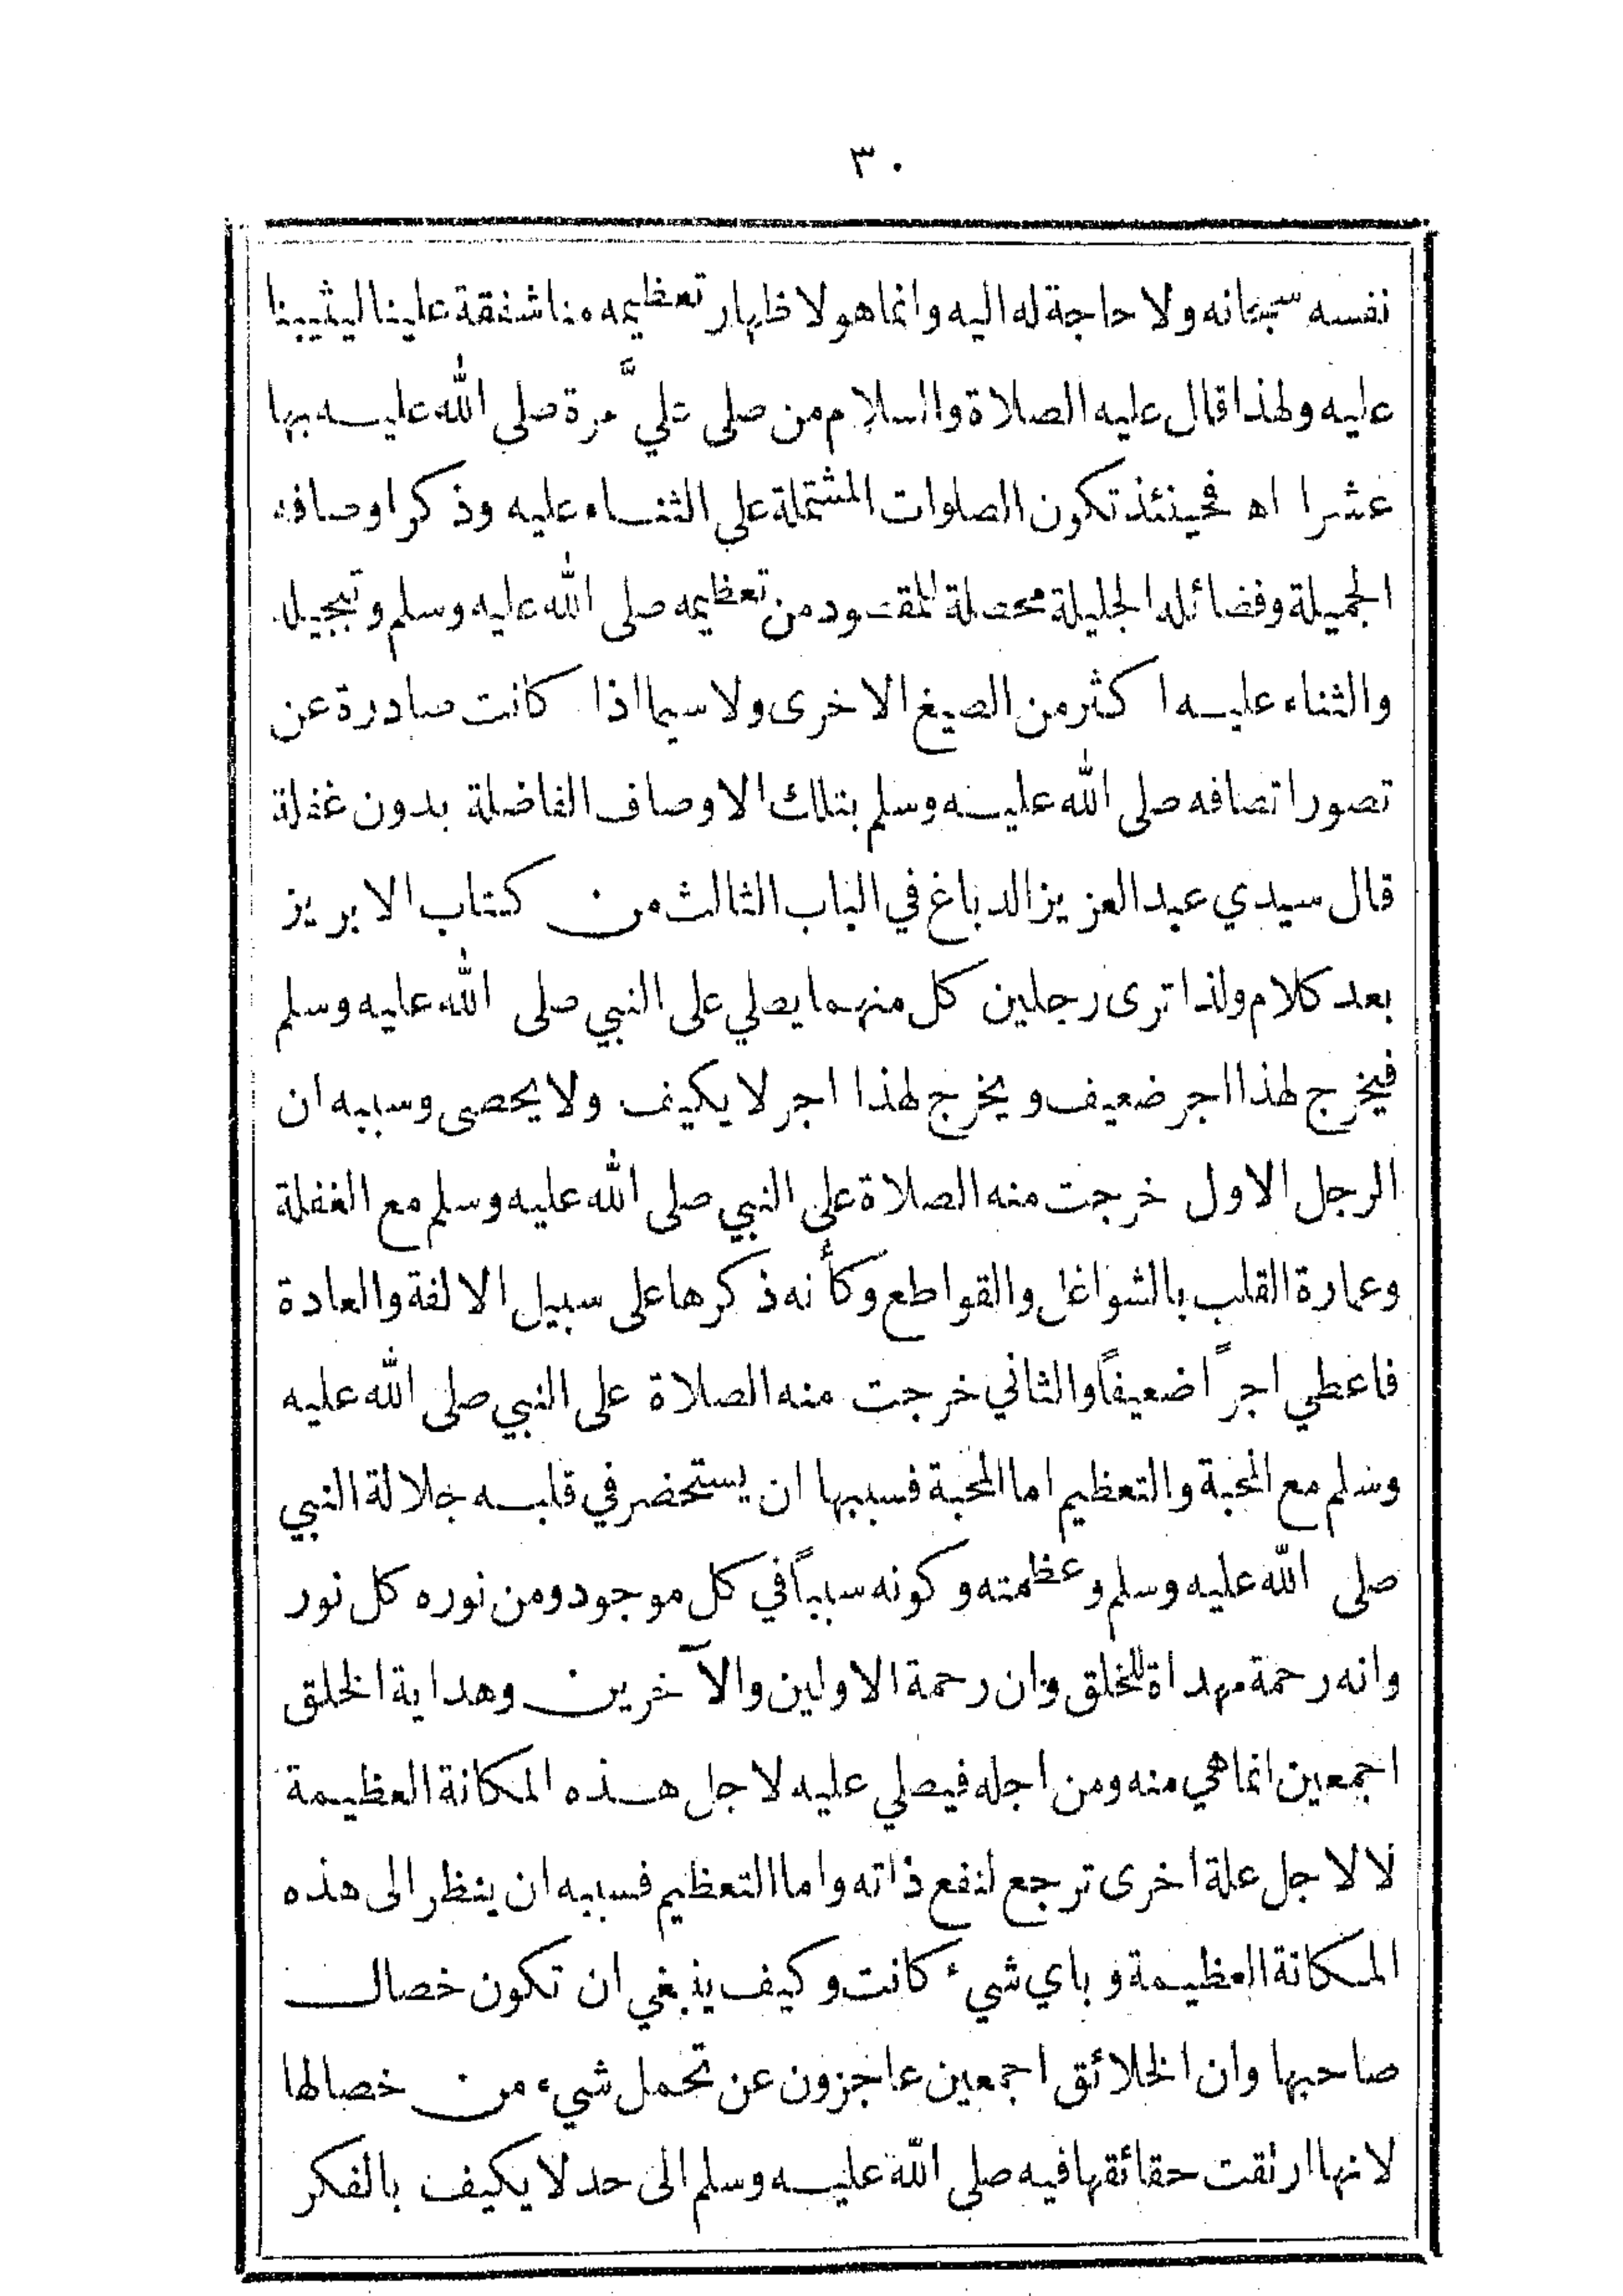 ٣٠
نفسه سبحانه ولا حاجة له اليه وانما هو لاظهار تعظيمه منا شفقة علينا ليثيبنا
عليه ولهذا قال عليه الصلاة والسلام من صلى عليَّ مرة صلى الله عليه بها
عشرا اه فحينئذ تكون الصلوات المشتملة على الثناء عليه وذكر اوصافه
الجميلة وفضائله الجليلة محصلة للمقصود من تعظيمه صلى الله عليه وسلم وتبجيله
والثناء عليه اكثر من الصيغ الاخرى ولا سيما اذا كانت صادرة عن
تصور اتصافه صلى الله عليه وسلم بتلك الاوصاف الفاضلة بدون غفلة
قال سيدي عبد العزيز الدباغ في الباب الثالث من كتاب الابريز
بعد كلام ولذا ترى رجلين كل منهما يصلي على النبي صلى الله عليه وسلم
فيخرج لهذا اجر ضعيف ويخرج لهذا اجر لا يكيف ولا يحصى وسببه ان
الرجل الاول خرجت منه الصلاة على النبي صلى الله عليه وسلم مع الغفلة
وعمارة القلب بالشواغل والقواطع وكأنه ذكرها على سبيل الالفة والعادة
فاعطي اجراً ضعيفاً والثاني خرجت منه الصلاة على النبي صلى الله عليه
وسلم مع المحبة والتعظيم اما المحبة فسببها ان يستحضر في قلبه جلالة النبي
صلى الله عليه وسلم وعظمته وكونه سبباً في كل موجود ومن نوره كل نور
وانه رحمة مهداة للخلق وان رحمة الاولين والآخرين وهداية الخلق
اجمعين انما هي منه ومن اجله فيصلي عليه لاجل هذه المكانة العظيمة
لا لاجل علة اخرى ترجع لنفع ذاته واما التعظيم فسببه ان ينظر الى هذه
المكانة العظيمة وباي شيء كانت وكيف ينبغي ان تكون خصال
صاحبها وان الخلائق اجمعين عاجزون عن تحمل شيء من خصالها
لانها ارتقت حقائقها فيه صلى الله عليه وسلم الى حد لا يكيف بالفكر